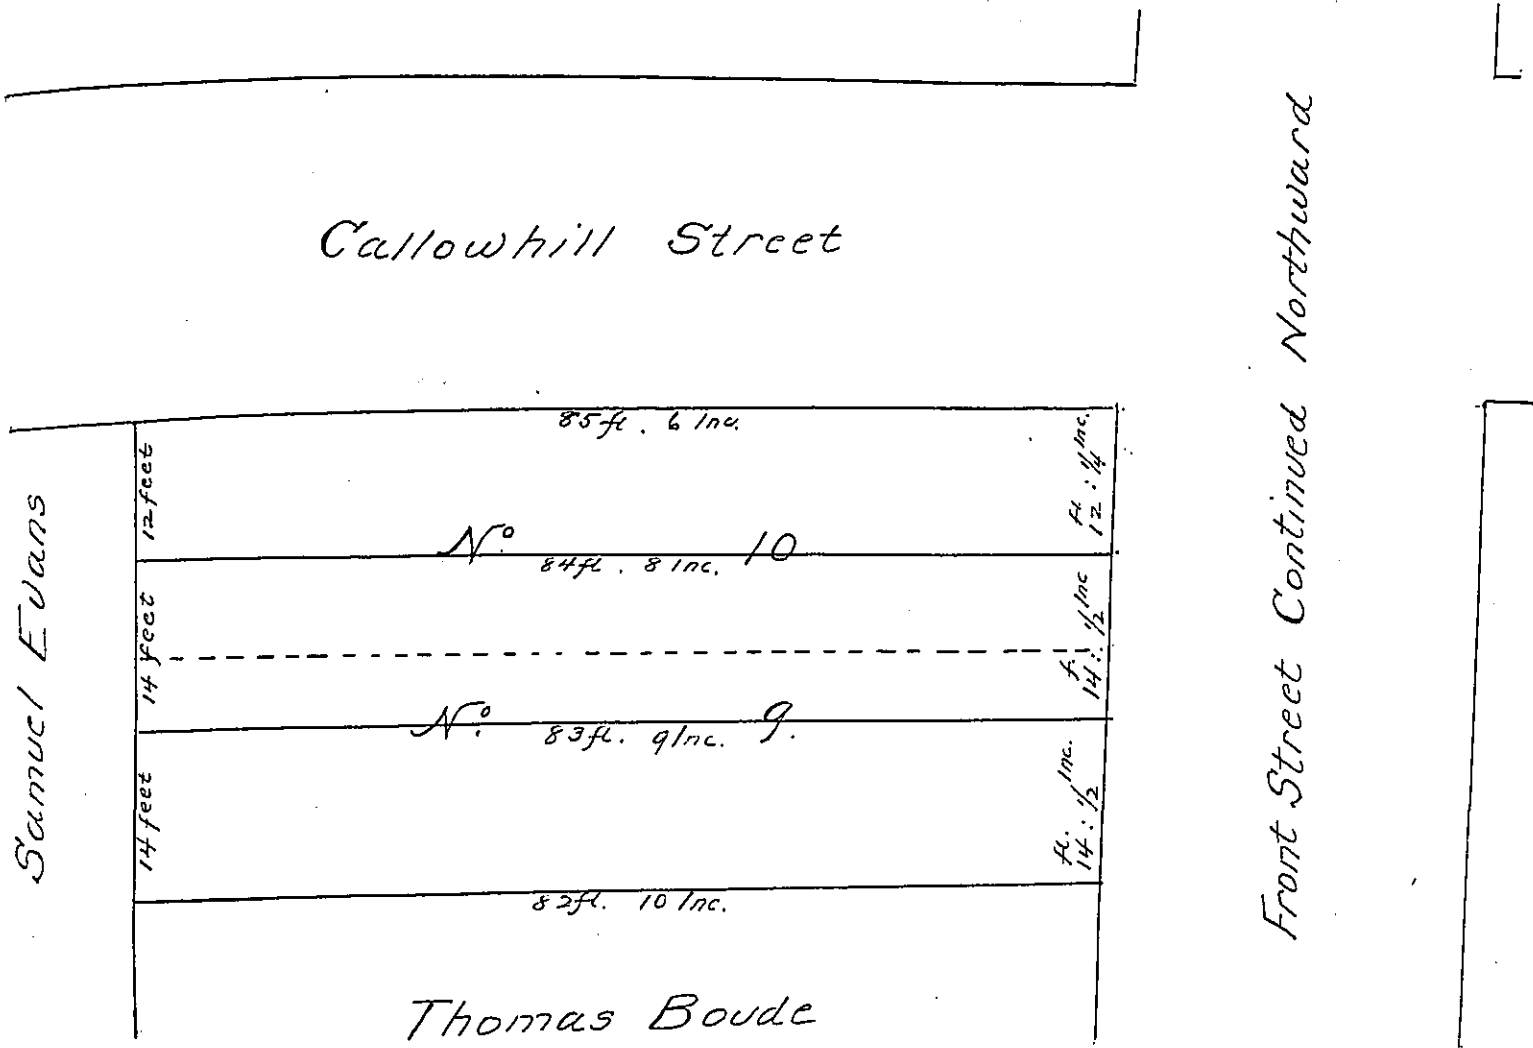 Callowhill Street
Front Street Continued Northward
Samuel Evans
85 ft. 6 Inc.
12 feet
ft. 12 : 1/4 Inc.
No. 10
84 ft. 8 Inc.
14 feet
f. 14 : 1/2 Inc
No. 9.
83 ft. 9 Inc.
14 feet
ft. 14 : 1/2 Inc.
82 ft. 10 Inc.
Thomas Boude